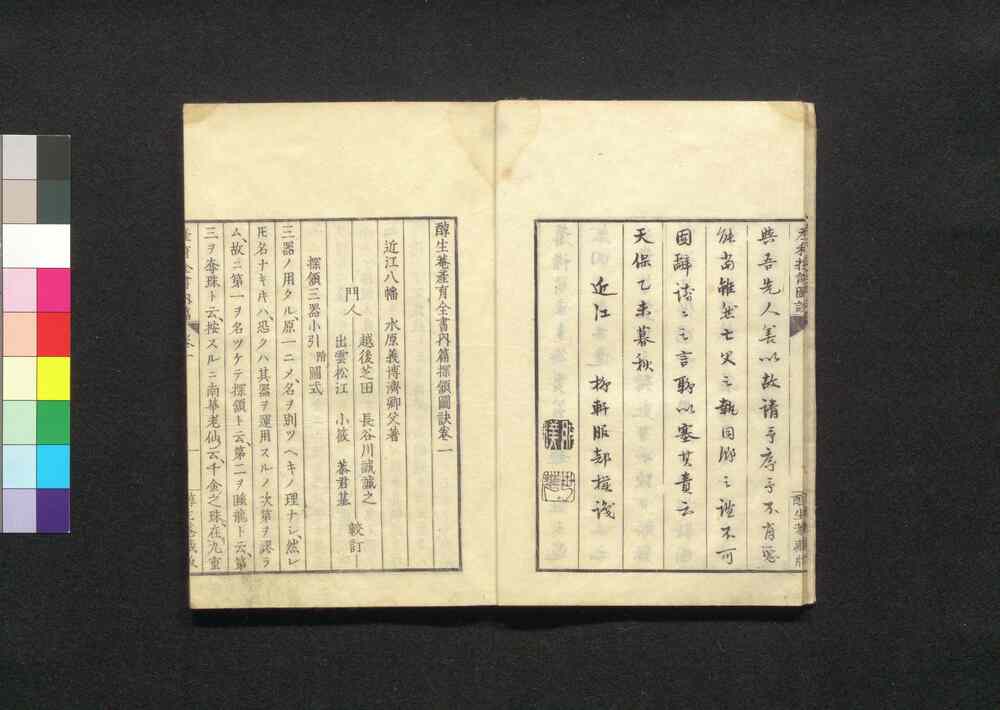 與吾先人善以故請予序予不肖惡
能當雖然亡父之執同鄉之誼不可
固辭諸之言聊以塞其責云
天保乙未暮秋
近江
醇生菴產育全書內篇探頷圖訣卷一
近江八幡 水原義博濟卿父著
門人
越後芝田 長谷川誠誠之
出雲松江 小篠 恭君基
較訂
探頷三器小引附圖式
三器ノ用タル、原一ニメ、名ヲ別ツヘキノ理ナシ、然レ
𪜈名ナキ𪜈ハ、恐クハ其器ヲ運用スルノ次第ヲ謬ラ
ム、故ニ第一ヲ名ツケテ探頷ト云、第二ヲ睡龍ト云、第
三ヲ奪珠ト云、按スルニ南華老仙云、千金之珠在九重